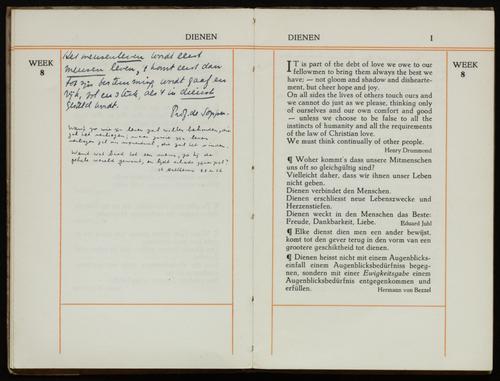 DIENEN
WEEK
8
Het mensenleven wordt eerst
mensen leven, & komt eerst dan
tot zijn bestemming, wordt gaaf en
rijk, vol en sterk, als 't in dienst
gesteld wordt.
Prof. de
Want zo wie zijn leven zal willen behouden, die
zal het verliezen, maar zo wie zijn leven
verliezen zal om
Want wat baat het een mens, zo hij de
gehele wereld gewint, en lijdt schade zijner ziel?
DIENEN 1
IT is part of the debt of love we owe to our
fellowmen to bring them always the best we
have; — not gloom and shadow and dishearte-
ment, but cheer hope and joy.
On all sides the lives of others touch ours and
we cannot do just as we please, thinking only
of ourselves and our own comfort and good
— unless we choose to be false to all the
instincts of humanity and all the requirements
of the law of Christian love.
We must think continually of other people.
Henry Drummond
¶ Woher kommt's dass unsere Mitmenschen
uns oft so gleichgültig sind?
Vielleicht daher, dass wir ihnen unser Leben
nicht geben.
Dienen verbindet den Menschen.
Dienen erschliesst neue Lebenszwecke und
Herzenstiefen.
Dienen weckt in den Menschen das Beste:
Freude, Dankbarkeit, Liebe. Eduard Juhl
¶ Elke dienst dien men een ander bewijst,
komt tot den gever terug in den vorm van een
grootere geschiktheid tot dienen.
¶ Dienen heisst nicht mit einem Augenblicks-
einfall einem Augenblicksbedürfniss begeg-
nen, sondern mit einer Ewigkeitsgabe einem
Augenblicksbedürfniss entgegenkommen und
erfüllen. Hermann von Bezzel
WEEK
8